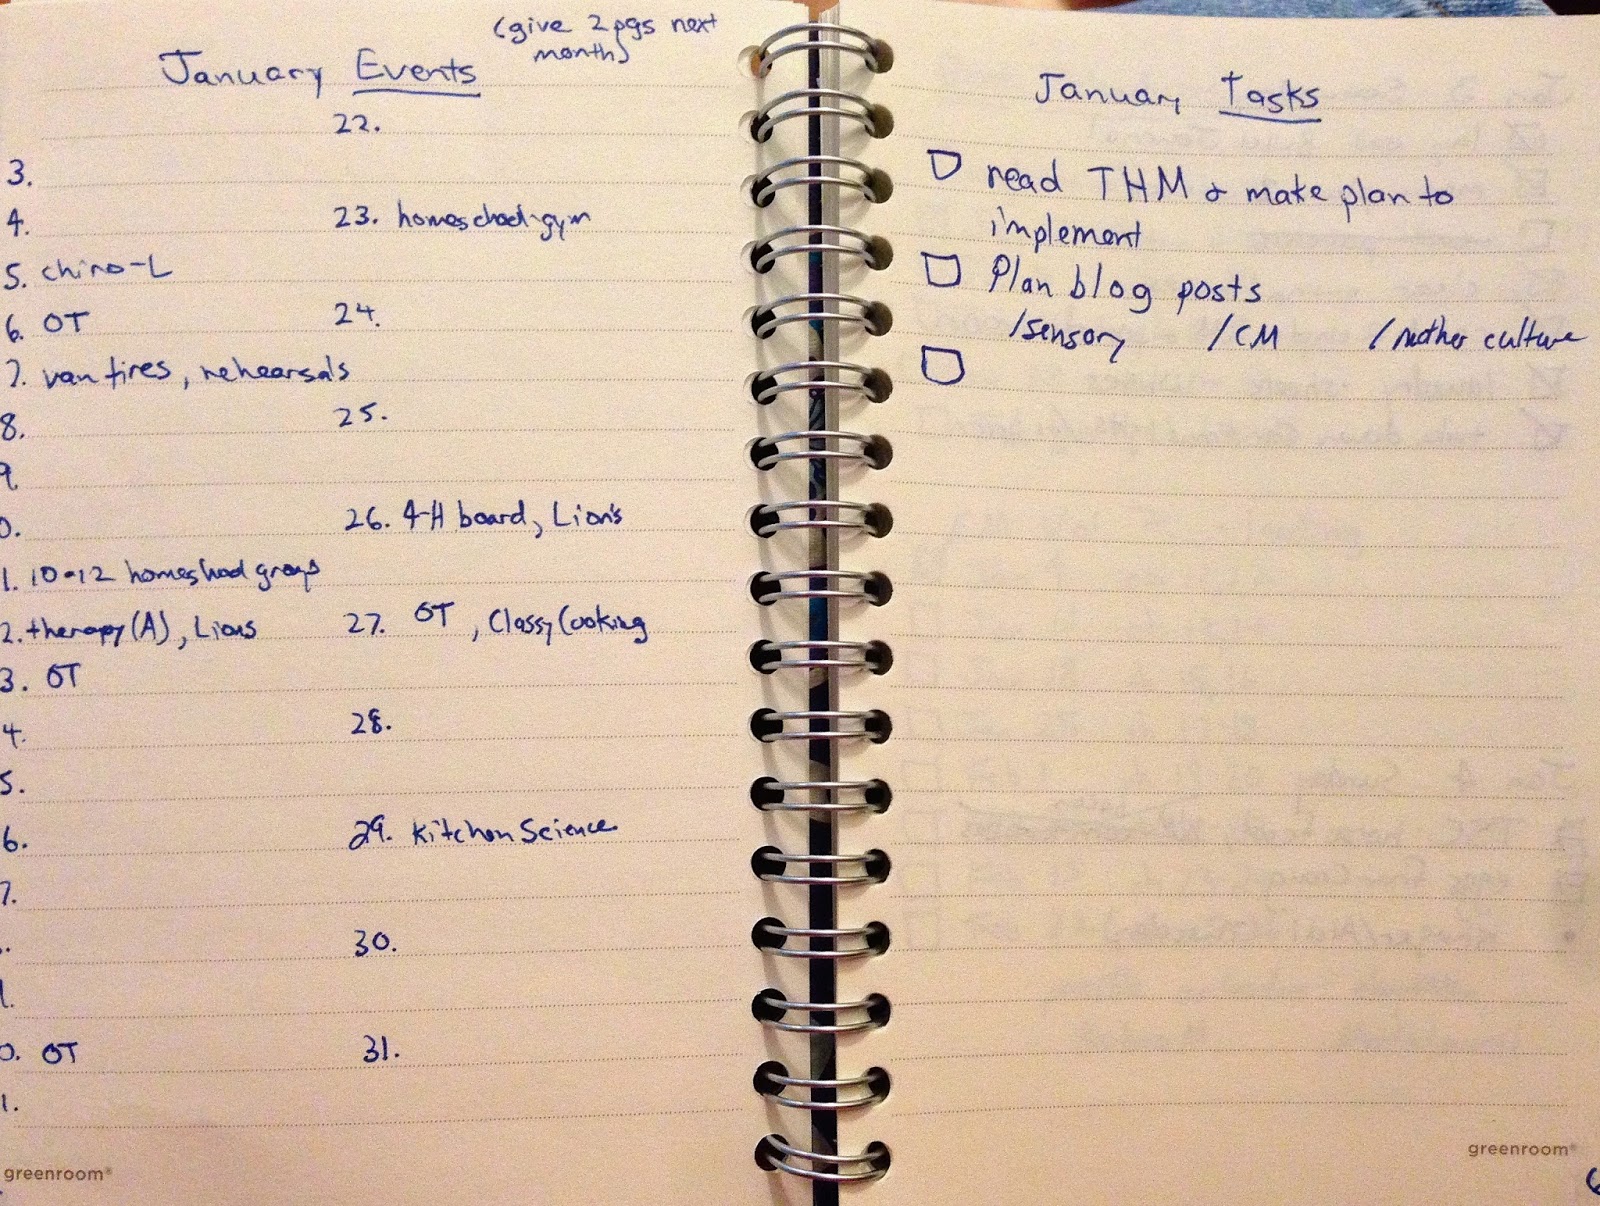 January Events
(give 2 pgs next
month)
3.
4.
5. chiro-L
6. OT
7. van tires, rehearsals
8.
9.
0.
1. 10-12 homeschool group
2. therapy (A), Lions
3. OT
4.
5.
6.
7.
0. OT
1.
22.
23. homeschool gym
24.
25.
26. 4-H board, Lion's
27. OT, Classy Cooking
28.
29. Kitchen Science
30.
31.
greenroom®
January Tasks
read THM & make plan to
implement
Plan blog posts
/sensory /CM /mother culture
greenroom®